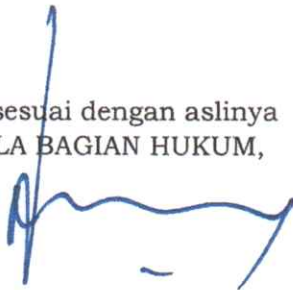 sesuai dengan aslinya
LA BAGIAN HUKUM,